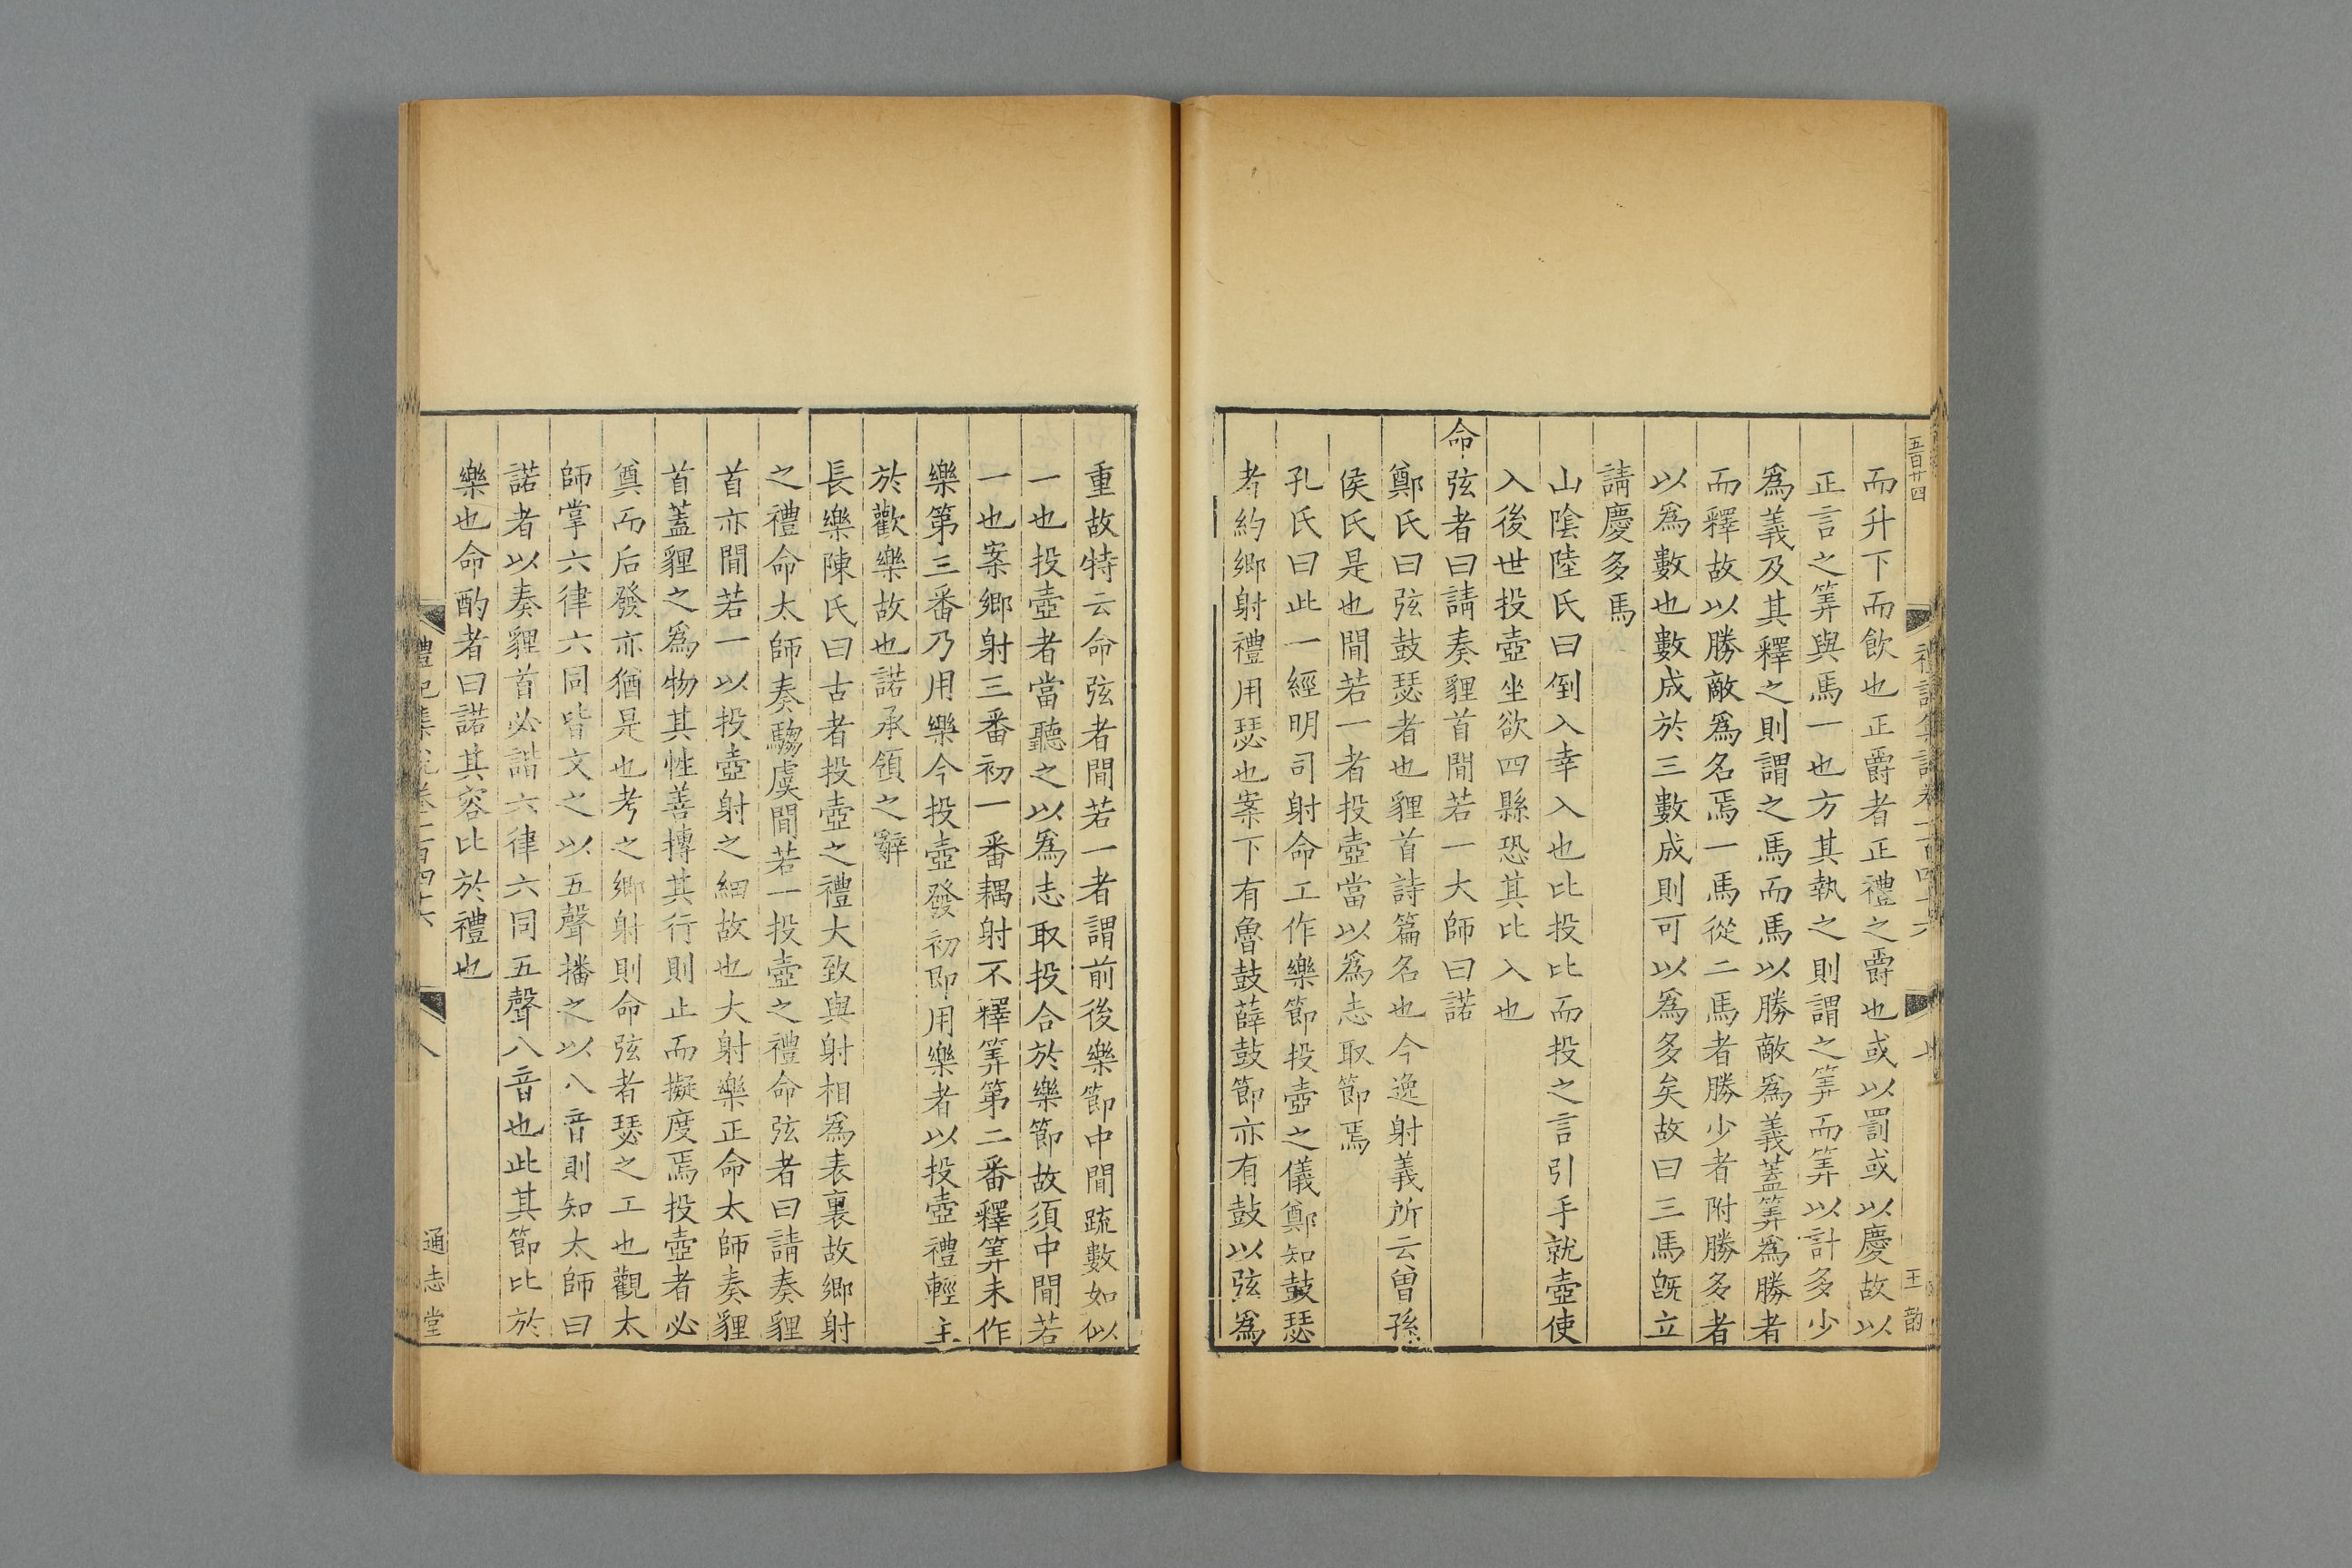 五百廿四
禮記集說卷一百四十六
七
王 韵
而升下而飲也正爵者正禮之爵也或以罰或以慶故以
正言之筭與馬一也方其執之則謂之筭而筭以計多少
爲義及其釋之則謂之馬而馬以勝敵爲義蓋筭爲勝者
而釋故以勝敵爲名焉一馬從二馬者勝少者附勝多者
以爲數也數成於三數成則可以爲多矣故曰三馬旣立
請慶多馬
山陰陸氏曰倒入幸入也比投比而投之言引手就壺使
入後世投壺坐欲四縣恐其比入也
命弦者曰請奏貍首閒若一大師曰諾
鄭氏曰弦鼓瑟者也貍首詩篇名也今逸射義所云曾孫
侯氏是也閒若一者投壺當以爲志取節焉
孔氏曰此一經明司射命工作樂節投壺之儀鄭知鼓瑟
者約鄉射禮用瑟也案下有魯鼓薛鼓節亦有鼓以弦爲
重故特云命弦者閒若一者謂前後樂節中閒疏數如似
一也投壺者當聽之以爲志取投合於樂節故須中閒若
一也案鄉射三番初一番耦射不釋筭第二番釋筭未作
樂第三番乃用樂今投壺發初即用樂者以投壺禮輕主
於歡樂故也諾承領之辭
長樂陳氏曰古者投壺之禮大致與射相爲表裏故鄉射
之禮命太師奏騶虞閒若一投壺之禮命弦者曰請奏貍
首亦閒若一以投壺射之細故也大射樂正命太師奏貍
首蓋貍之爲物其性善搏其行則止而擬度焉投壺者必
奠而后發亦猶是也考之鄉射則命弦者瑟之工也觀太
師掌六律六同皆文之以五聲播之以八音則知太師曰
諾者以奏貍首必諧六律六同五聲八音也此其節比於
樂也命酌者曰諾其容比於禮也
禮記集說卷一百四十六
八
通志堂